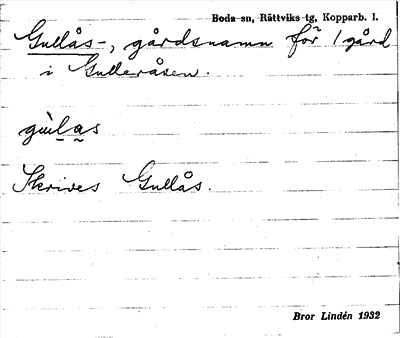 Boda sn, Rättviks tg, Kopparb. l.
Gullås-, gårdsnamn för 1 gård
i Gulleråsen.
gùlas
Skrives Gullås.
Bror Lindén 1932